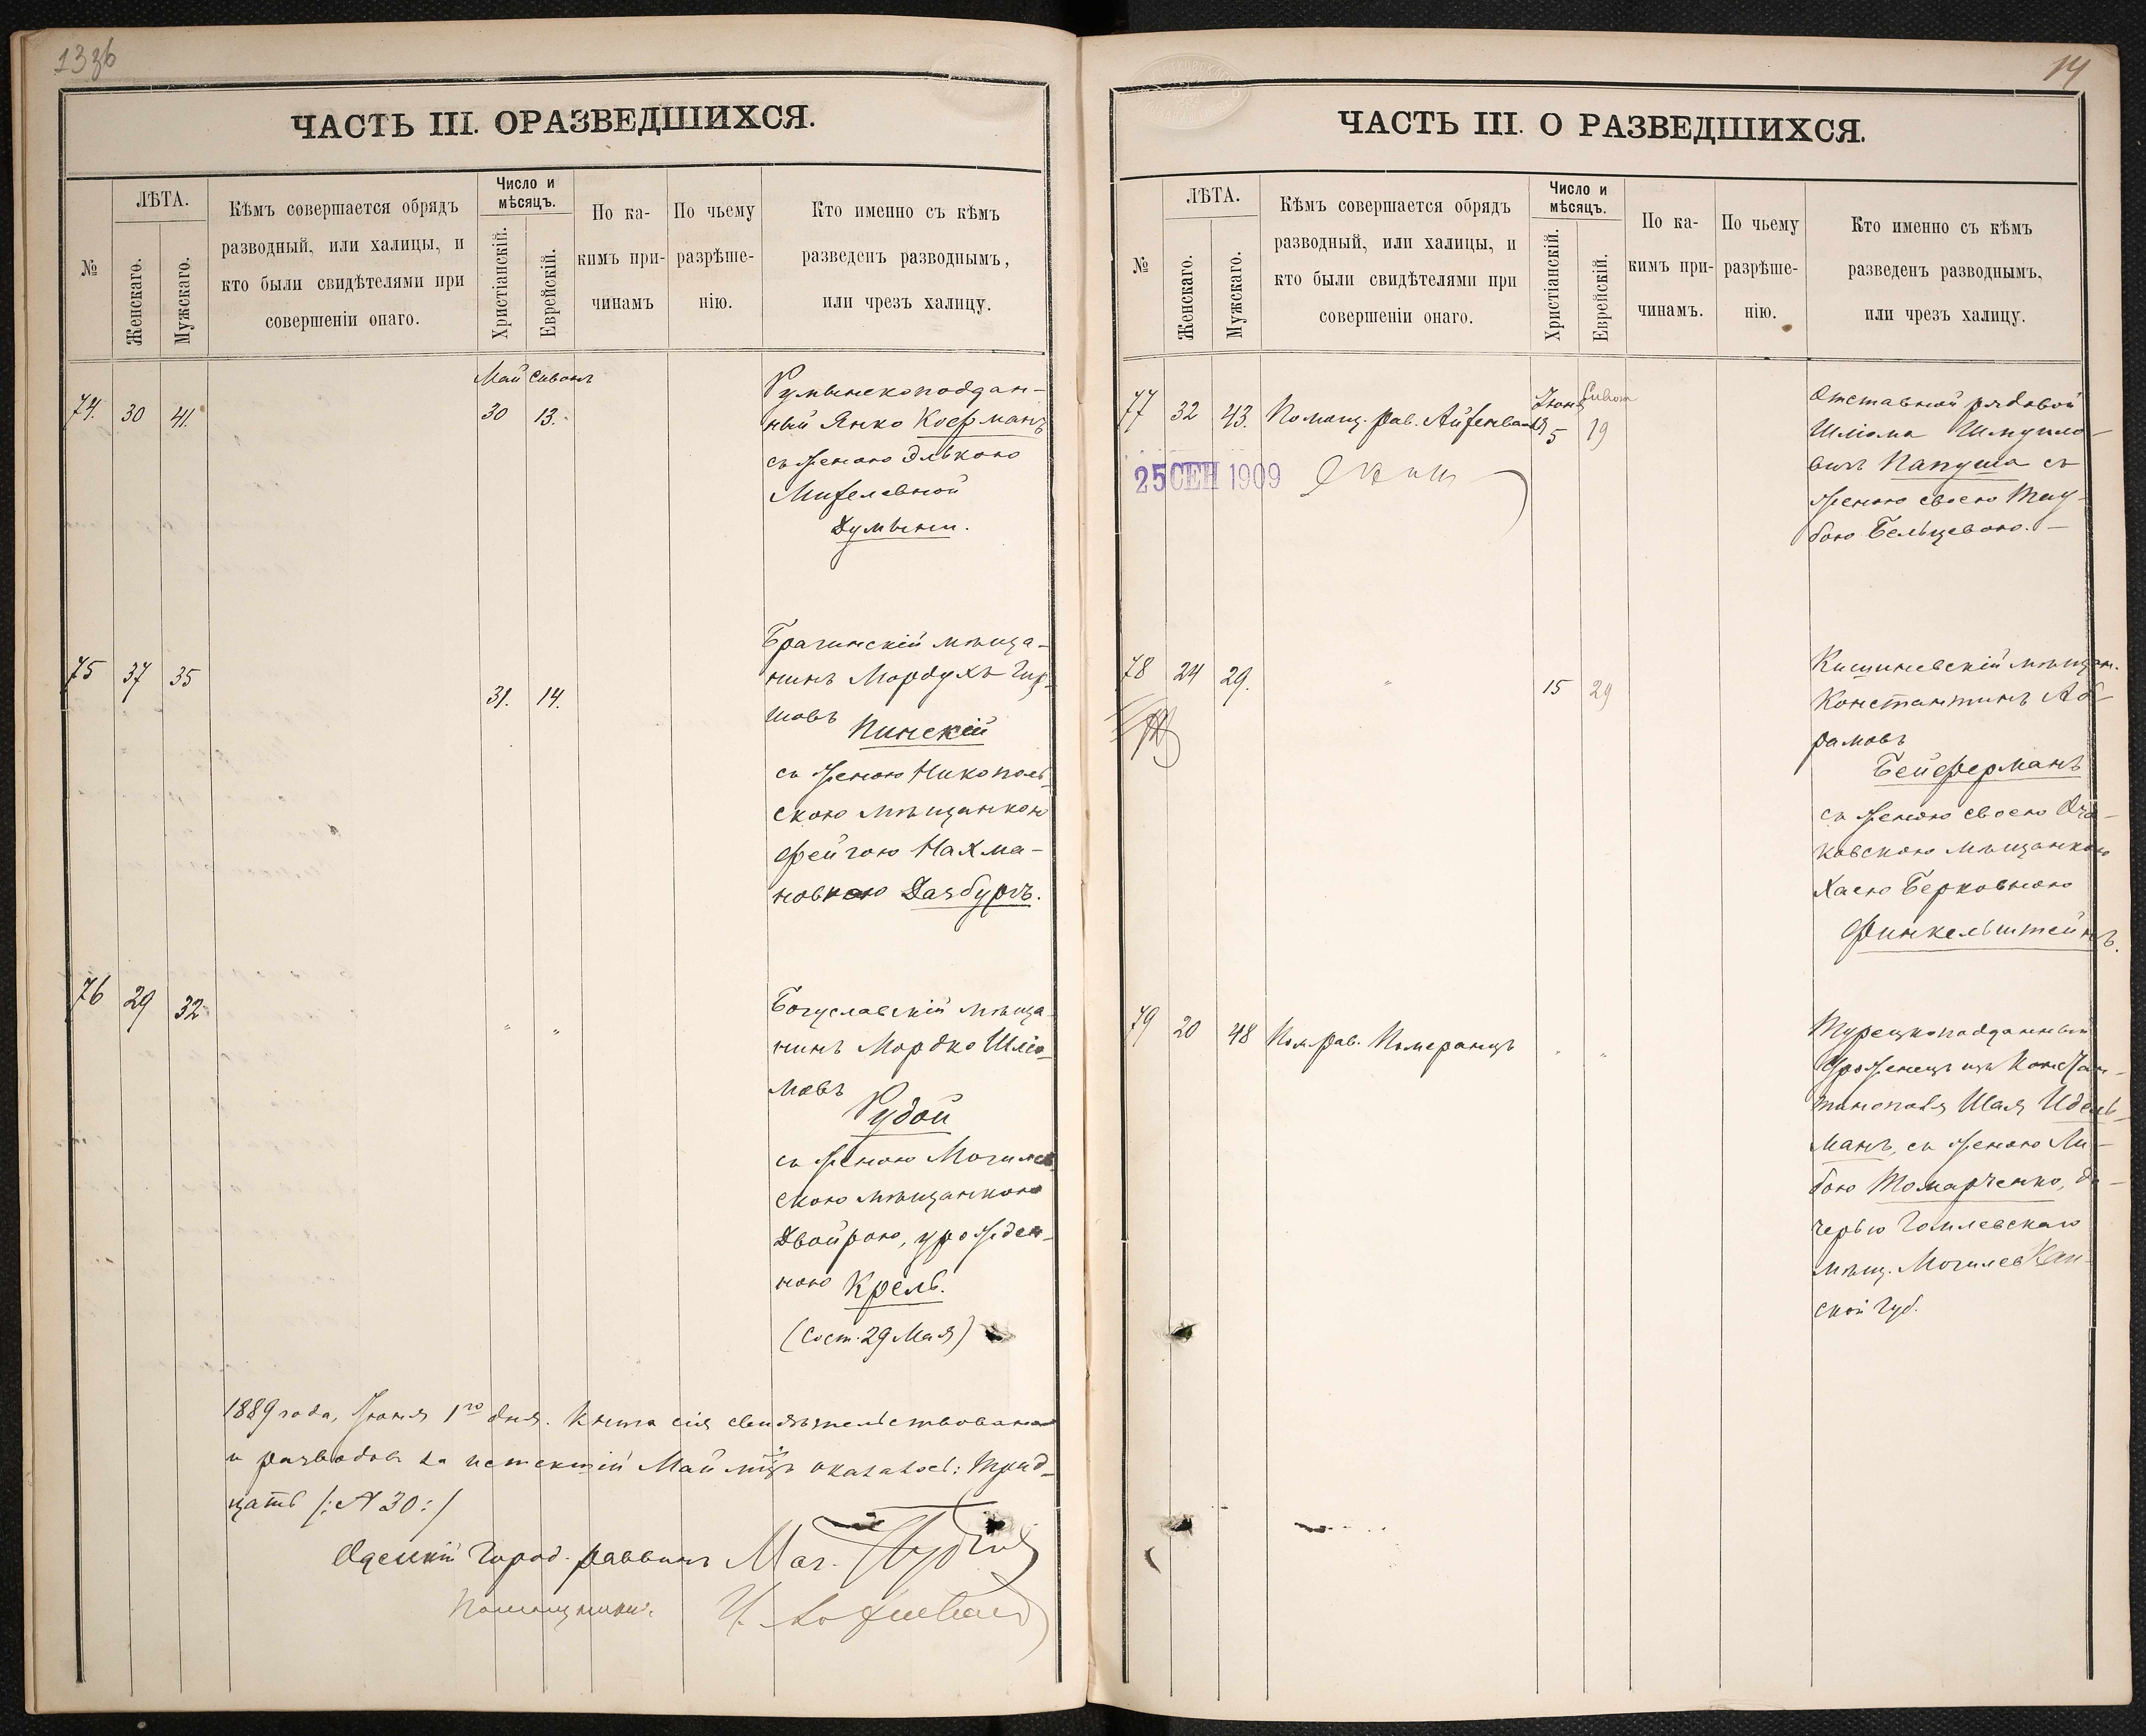 13об
ЧАСТЬ III. ОРАЗВЕДШИХСЯ.
№
ЛѢТА.
Женскаго.
Мужскаго.
Кѣмъ совершается обрядъ
разводный, или халицы, и
кто были свидѣтелями при
совершеніи онаго.
Число и
мѣсяцъ.
Христіанскій.
Еврейскій.
По ка-
кимъ при-
чинамъ
По чьему
разрѣше-
нію.
Кто именно съ кѣмъ
разведенъ разводнымъ,
или чрезъ халицу.
Май Сивонъ
74. 30 41. 30 13.
Румынскоподдан-
ный Янко Коферманъ
съ женою Элькою
Мизелевной
Думыни.
75 37 35 31. 14.
Брагинскій мѣща-
нинъ Мордухъ Гир-
шовъ
Пинскій
съ женою Никополь-
скою мѣщанкою
Фейгою Нахма-
новною Дазбургъ.
76 29 32 " "
Богуславскій мѣща-
нинъ Мордко Шлiо-
мовъ
Рудой
съ женою Могилев-
скою мѣщанкою
Двойрою, урожден-
ною Крель.
(Сост. 29 Мая)
1889 года, Іюня 1го дня. Книга сія свидѣтельствована
и разводовъ за истекшій Май мѣц. оказалось: Трид-
цать /: N 30 :/
Одесскій Город. раввинъ
Помощники:
14
ЧАСТЬ III. О РАЗВЕДШИХСЯ.
№
ЛѢТА.
Женскаго.
Мужскаго.
Кѣмъ совершается обрядъ
разводный, или халицы, и
кто были свидѣтелями при
совершеніи онаго.
Число и
мѣсяцъ.
Христіанскій.
Еврейскій.
По ка-
кимъ при-
чинамъ.
По чьему
разрѣше-
нію.
Кто именно съ кѣмъ
разведенъ разводнымъ,
или чрезъ халицу.
Іюнь Сивон
77 32 43. Помощ. рав. Айзенвальд 5 19
25 СЕН 1909
Отставной рядовой
Шліома Шмулло-
вичъ Папуша съ
женою своею Тау-
бою Бельцевою. —
78 24 29. " 15 29
Кишиневскій мѣщан.
Константинъ Аб-
рамовъ
Бейферманъ
съ женою своею Оча-
ковскою мѣщанкою
Хаею Берковною
Финкельштейнъ.
79 20 48 Пом. рав. Померанцъ " "
Турецкоподданный
Уроженецъ изъ Констан-
тинополя Шая Идель-
манъ, съ женою Ли-
бою Томарченко, до-
черью Гомлевскаго
мѣщ. Могилев
ской губ.